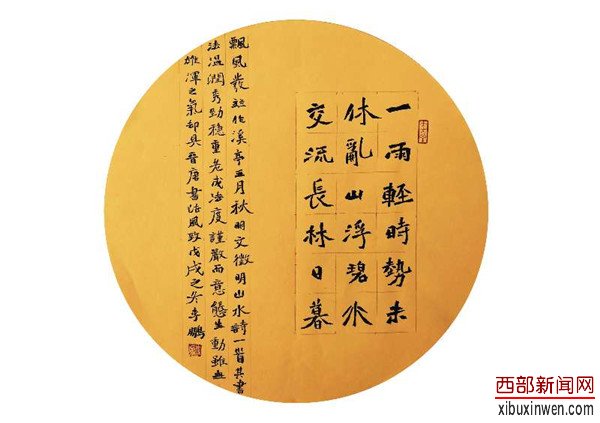 一雨輕時勢未
休亂山浮碧水
交流長林日暮
飄風發竝作溪亭五月秋明文徵明山水詩一首其書
法溫潤秀勁穩重老成法度謹嚴而意態生動雖無
雄渾之氣卻具晉唐書法風致戊戌之冬李鵬
西部新闻网
xibuxinwen.com